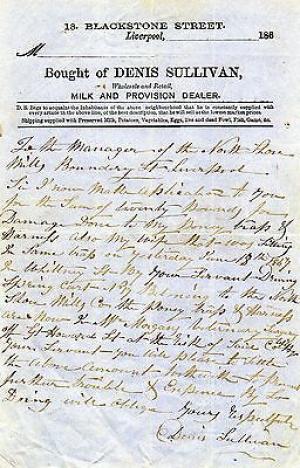 13. BLACKSTONE STREET.
Liverpool, 186
M
Bought of DENIS SULLIVAN,
Wholesale and Retail,
MILK AND PROVISION DEALER.
D. S. Begs to acquaint the Inhabitants of the above neighbourhood that he is constantly supplied with
every article in the above line, of the best description, that he will sell at the lowest market prices.
Shipping supplied with Preserved Milk, Potatoes, Vegetables, Eggs, live and dead Fowl, Fish, Game, &c.
To the Manager of the North Shore
Mills Boundary St Liverpool
Sir I now Make application to You
for the Sum of twenty Pounds for
Damage Done to My Pony trap &
Harness also My Wife that was Sitting
in Same trap on Yesterday June 13th 1867
in St By Your Servant Driving
Spring Cart Belonging to the North
Shore Mills Co the Pony trap & Harness
are Now in Mr Morgans Veterinary
off Gt Howard St at the Risk of
Your Servant You Will Please to Settle
the above Amount
further trouble & Expense By So
Doing will oblige Yours Respectfully
Denis Sullivan